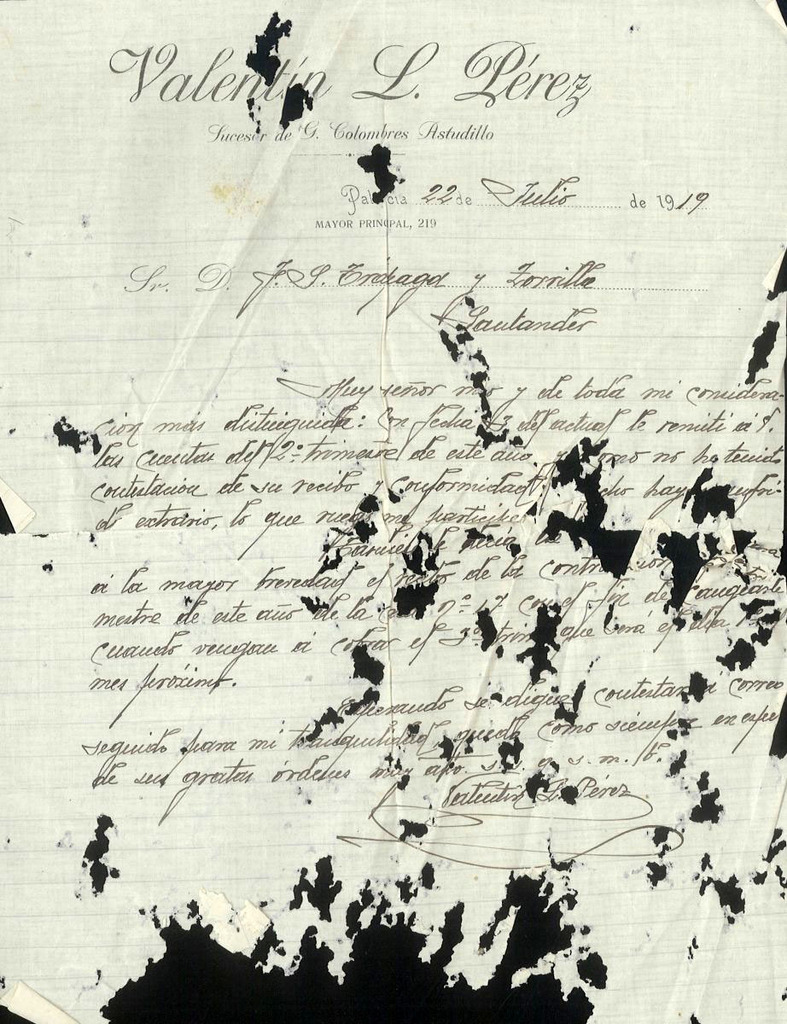 Valentín L. Pérez
Sucesor de G. Colombres Astudillo
Palencia 22 de Julio de 1919
MAYOR PRINCIPAL, 219
Sr. D. J. S. y Zorrilla
Santander
Muy señor mio y de toda mi considera-
cion mas distinguida: Con fecha del actual le remiti á V.
las cuentas del 2º trimestre de este año y como no he tenido
contestacion de su recibo y conformidad, sufri-
do extravio, lo que ruego me participe
á la mayor brevedad el recibo de la contribucion
mestre de este año de la casa nº 17 con el fin de cangearle
cuando vengan á cobrar el 3º que será el dia
mes próximo.
Esperando se digne contestar á correo
seguido para mi tranquilidad, queda como siempre en espe
de sus gratas órdenes muy afmo. s. s. q. s. m. b.
Valentin L. Pérez